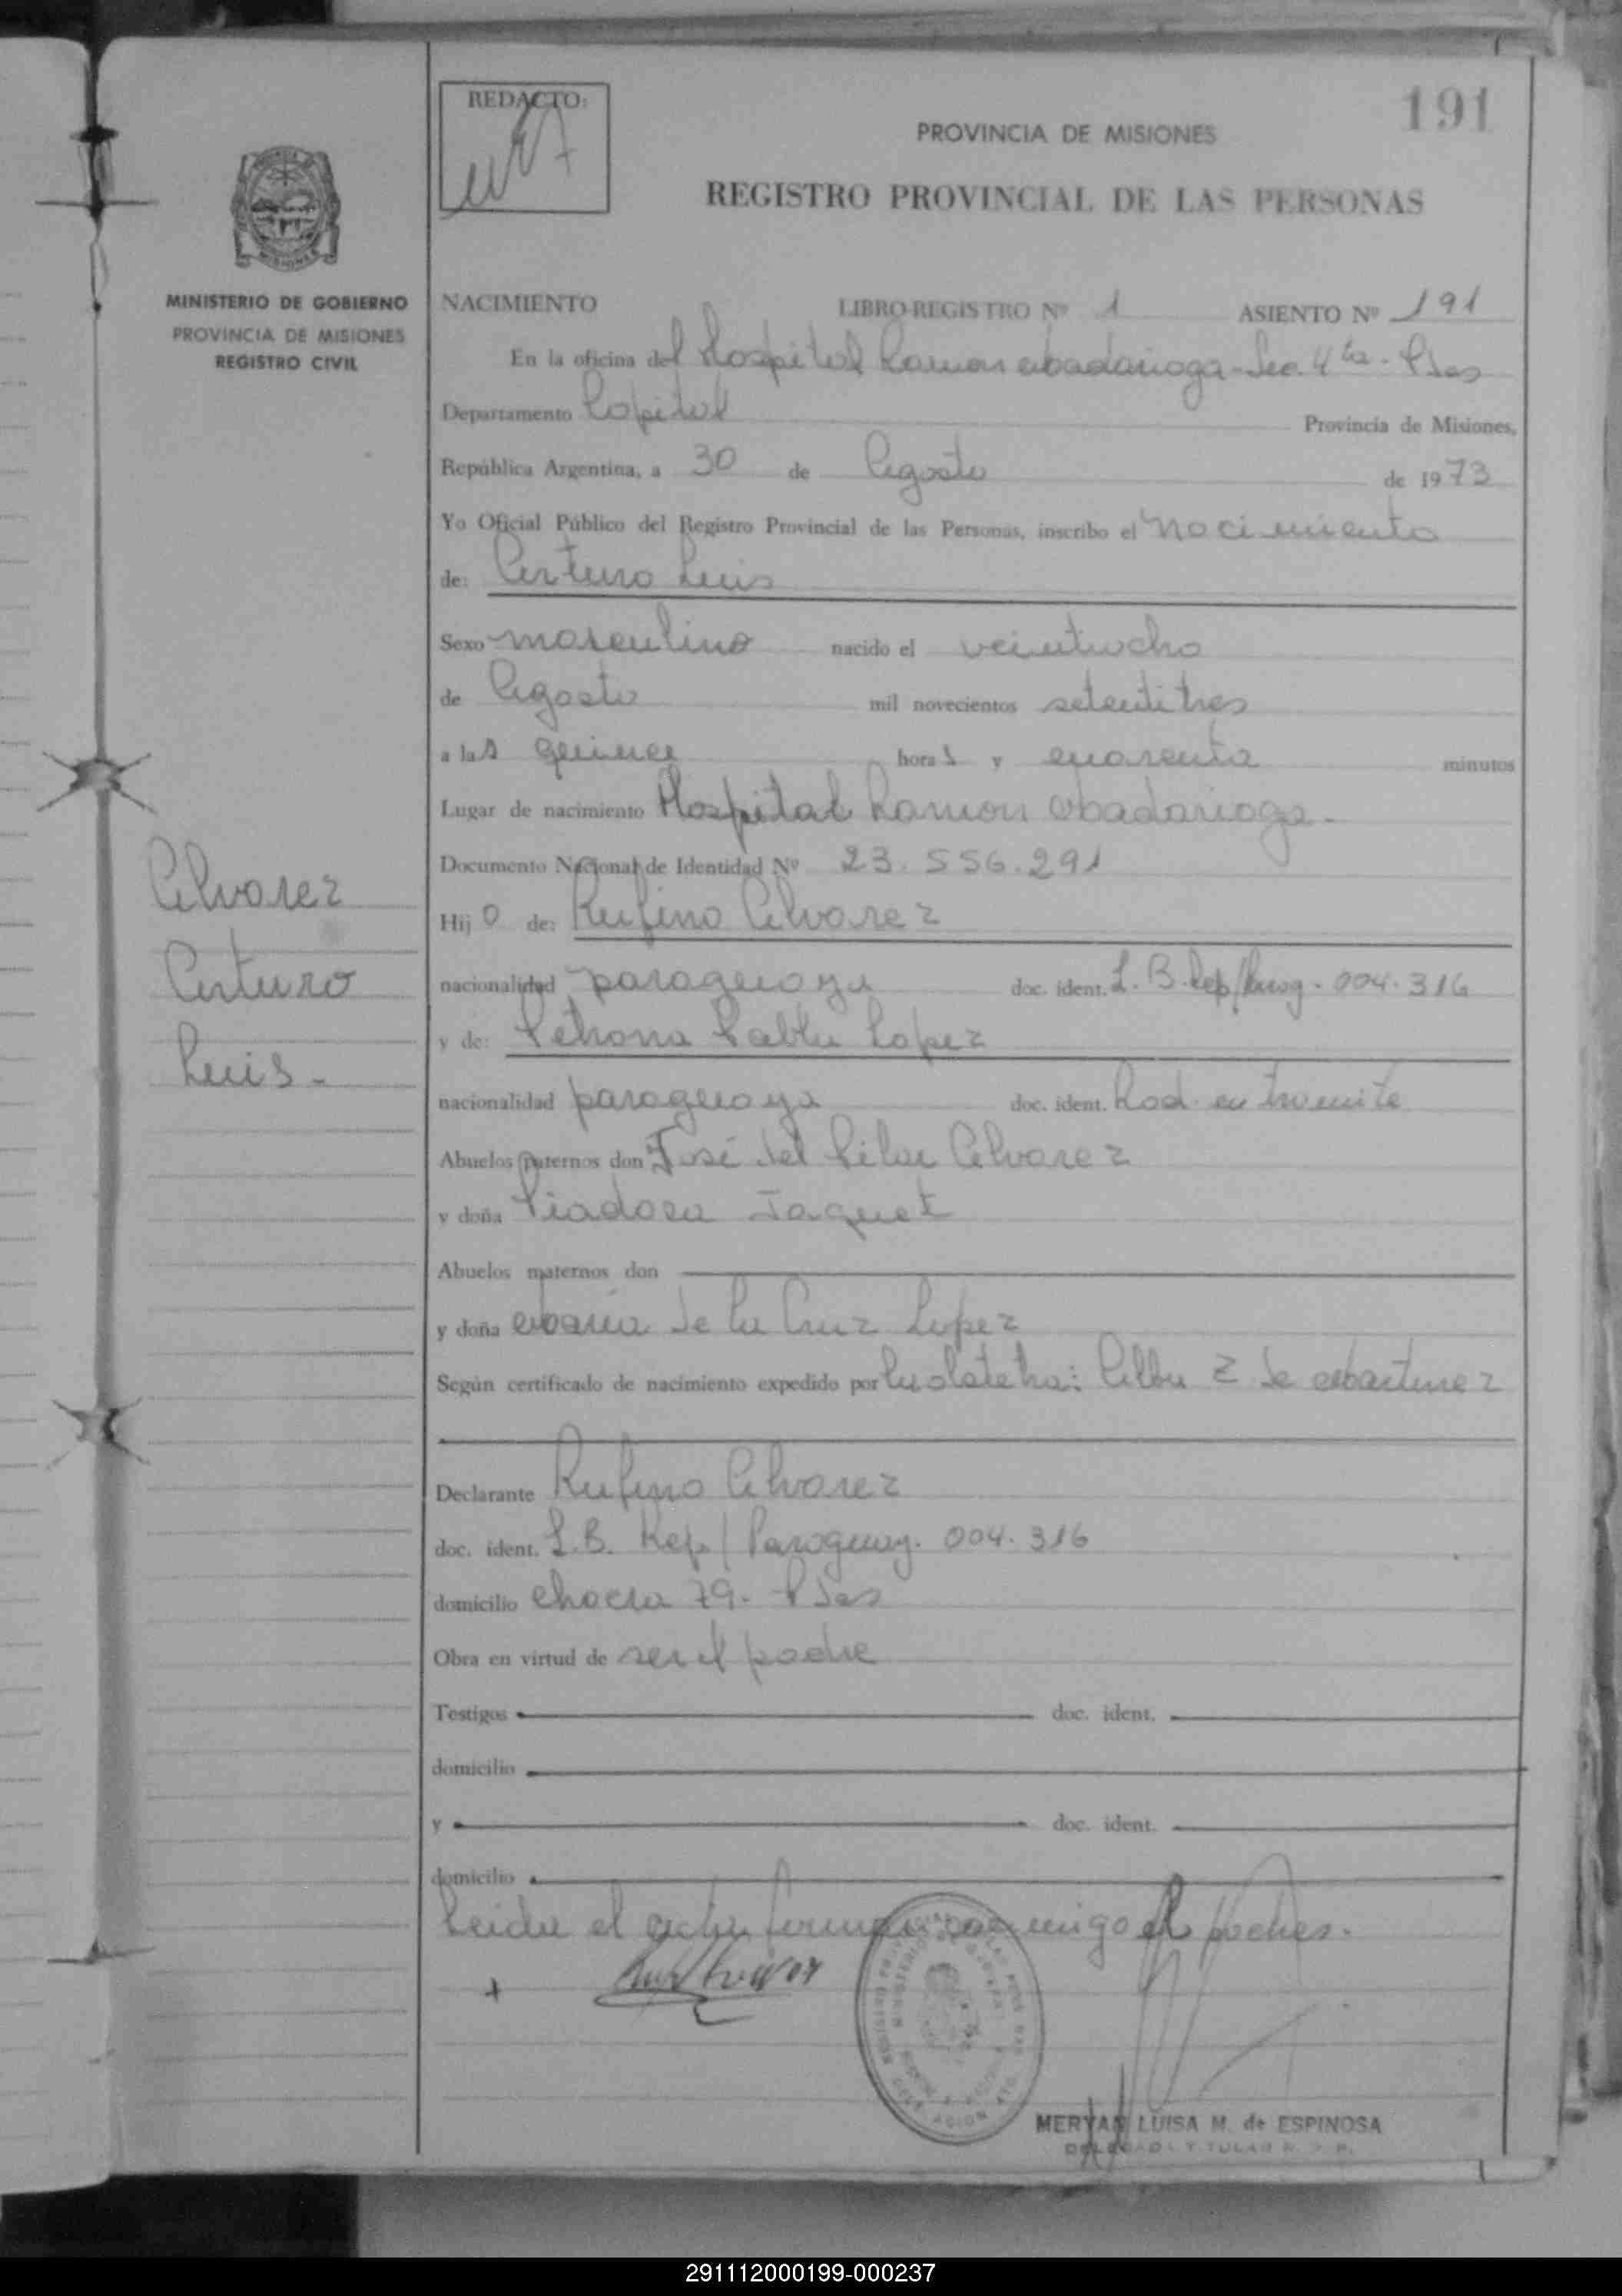 191
REDACTO:
PROVINCIA DE MISIONES
REGISTRO PROVINCIAL DE LAS PERSONAS
MINISTERIO DE GOBIERNO
PROVINCIA DE MISIONES
REGISTRO CIVIL
Alvarez
Arturo
Luis.-
NACIMIENTO LIBRO-REGISTRO Nº 1 ASIENTO Nº 191
En la oficina del Hospital Ramon Madariaga - Sec. 4ta - Pdas
Departamento Capital Provincia de Misiones,
República Argentina, a 30 de Agosto de 1973
Yo Oficial Público del Registro Provincial de las Personas, inscribo el nacimiento
de: Arturo Luis
Sexo masculino nacido el veintiocho
de Agosto mil novecientos setentitres
a las quince horas y cuarenta minutos
Lugar de nacimiento Hospital Ramon Madariaga.-
Documento Nacional de Identidad Nº 23.556.291
Hijo de: Rufino Alvarez
nacionalidad paraguaya doc. ident. L.B. Rep/Parag. 004.316
y de: Petrona Pabla Lopez
nacionalidad paraguaya doc. ident. Rad. en tramite
Abuelos paternos don José del Pilar Alvarez
y doña Piadosa Jaquet
Abuelos maternos don
y doña Maria de la Cruz Lopez
Según certificado de nacimiento expedido por la obstetra: Z de Martinez
Declarante Rufino Alvarez
doc. ident. L.B. Rep/Paraguay. 004.316
domicilio Chacra 79. Pdas
Obra en virtud de ser el padre
Testigos doc. ident.
domicilio
y doc. ident.
domicilio
Leida el acta firma conmigo el padre.-
MERYAN LUISA M. de ESPINOSA
DELEGADA TITULAR R. P. P.
291112000199-000237